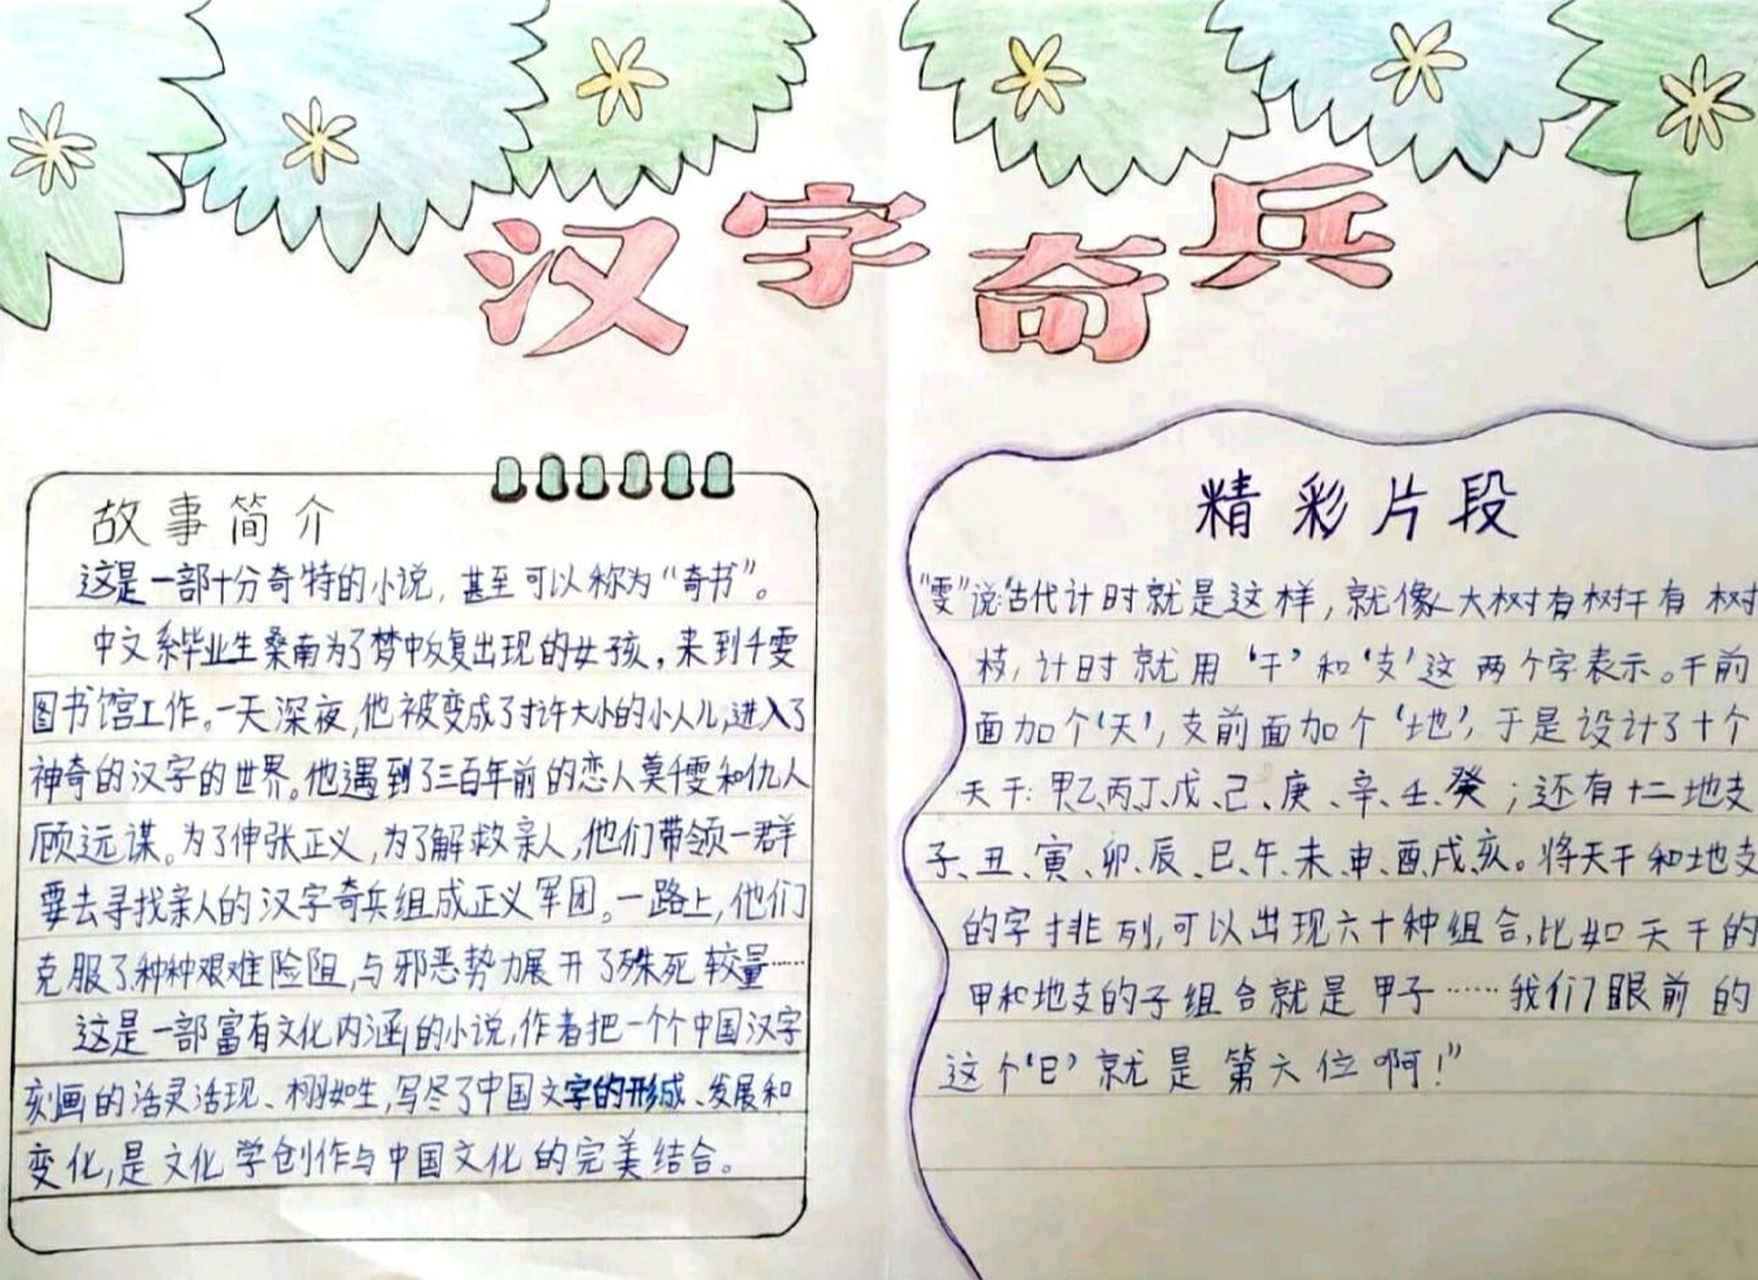 汉字奇兵
故事简介
这是一部十分奇特的小说，甚至可以称为“奇书”。
中文系毕业生桑南为了梦中反复出现的女孩，来到千雯
图书馆工作。一天深夜，他被变成了寸许大小的小人儿，进入了
神奇的汉字的世界。他遇到了三百年前的恋人莫千雯和仇人
顾远谋。为了伸张正义，为了解救亲人，他们带领一群
要去寻找亲人的汉字奇兵组成正义军团。一路上，他们
克服了种种艰难险阻，与邪恶势力展开了殊死较量……
这是一部富有文化内涵的小说，作者把一个个中国汉字
刻画的活灵活现、栩如生，写尽了中国文字的形成、发展和
变化，是文化学创作与中国文化的完美结合。
精彩片段
“雯”说：“古代计时就是这样，就像大树有树干有树
枝，计时就用‘干’和‘支’这两个字表示。干前
面加个‘天’，支前面加个‘地’，于是设计了十个
天干：甲、乙、丙、丁、戊、己、庚、辛、壬、癸；还有十二地支
子、丑、寅、卯、辰、巳、午、未、申、酉、戌、亥。将天干和地支
的字排列，可以出现六十种组合，比如天干的
甲和地支的子组合就是甲子……我们眼前的
这个‘巳’就是第六位啊！”